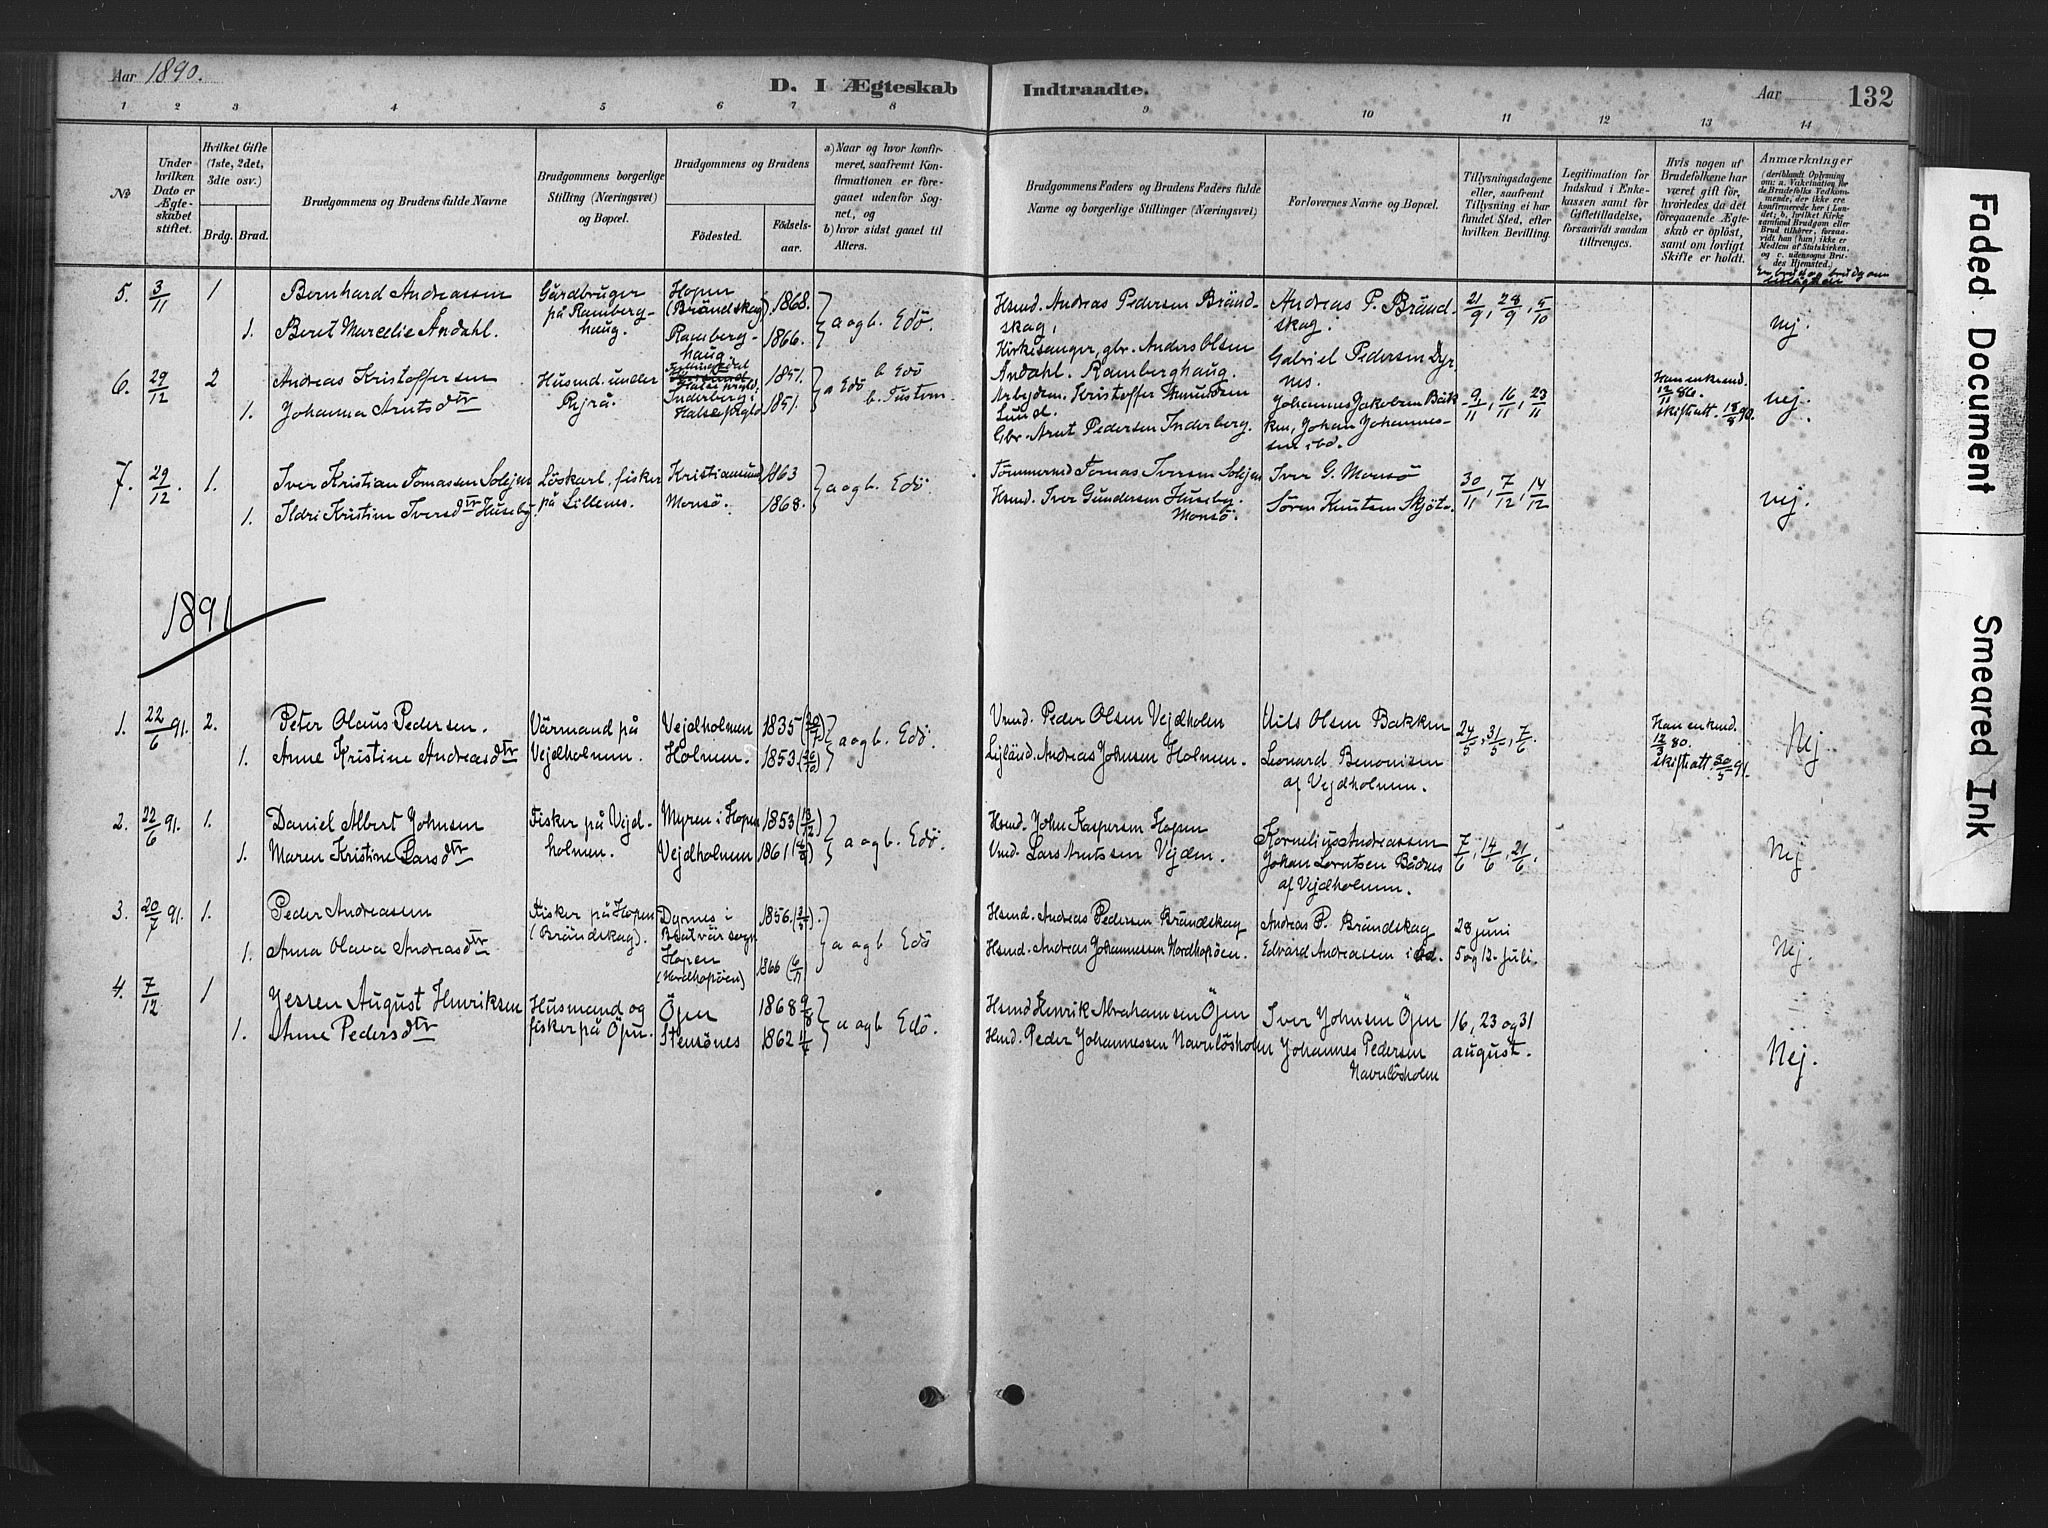 Aar 1890.
D. I Ægteskab Indtraadte.
Aar
132
1 2 3 4 5 6 7 8 9 10 11 12 13 14
№
Under hvilken Dato er Ægteskabet stiftet.
Hvilket Gifte (1ste, 2det, 3die osv.)
Brdg. Brud.
Brudgommens og Brudens fulde Navne
Brudgommens borgerlige Stilling (Næringsvei) og Bopæl.
Brudgommens og Brudens
Fødested.
Fødselsaar.
a) Naar og hvor konfirmeret, saafremt Konfirmationen er foregaaet udenfor Sognet, og
b) hvor sidst gaaet til Alters.
Brudgommens Faders og Brudens Faders fulde Navne og borgerlige Stillinger (Næringsvei)
Forlovernes Navne og Bopæl.
Tillysningsdagene eller, saafremt Tillysning ei har fundet Sted, efter hvilken Bevilling.
Legitimation for Indskud i Enkekassen samt for Giftetilladelse, forsaavidt saadan tiltrænges.
Hvis nogen af Brudefolkene har været gift før, hvorledes da det foregaaende Ægteskab er opløst, samt om lovligt Skifte er holdt.
Anmærkninger
(deriblandt Oplysning om: a. Vakcination for de Brudefolks Vedkommende, der ikke ere konfirmerede her i Landet; b. hvilket Kirkesamfund Brudgom eller Brud tilhører, forsaavidt han (hun) ikke er Medlem af Statskirken, og c. udensogns Brudes Hjemsted.)
Er brud og brudgom
5. 3/11 1 Bernhard Andreassen Gårdbruger på Ramberghaug. Hopen (Brändskag) 1868. a og b. Edö. Hsmd. Andreas Pedersen Brändskag, Andreas P. Brändskag. 21/9, 28/9, 5/10
1. Beret Marcelie Andahl. Ramberghaug. 1866. Kirkesanger, gbr. Anders Olsen Andahl. Ramberghaug. Gabriel Pedersen Dyrnes. Nej.
6. 29/12 2 Andreas Kristoffersen Husmd. under Rejrå. Halse prgld. 1851. a Edö b Edö Arbejdsm. Kristoffer Amundsen Lund. Johannes Jakobsen Bäkken, Johan Johannessen ibd. 9/11, 16/11, 23/11 Han enkemd. 12/11 86. skifteatt. 18/8 90. Nej.
1. Johanna Arntsdtr Inderberg i Halse prgld 1851. b. Tustern. Gbr. Arnt Pedersen Inderberg.
7. 29/12. 1. Iver Kristian Tomassen Solejen Löskarl, fisker på Lillenes. Kristiansund 1863 a og b. Edö. Tömmermd Tomas Iversen Solejen Iver G. Monsö 30/11, 7/12, 14/12
1. Ildri Kristine Iversdtr Huseby. Monsö. 1868. Hsmd. Iver Gundersen Huseby. Monsö. Sören Knutsen Skjöts. Nej.
1891
1. 22/6 91. 2. Peter Olaus Pedersen. Värmand på Vejdholmen. Vejdholmen 1835 (20/7) a og b. Edö. Vrmd. Peder Olsen Vejdholm Nils Olsen Bakken 24/5, 31/5, 7/6. Han enkemd. 12/3 80. skifteatt. 30/5 91. Nej
1. Anne Kristine Andreasdtr Holmen. 1853 (26/10) Lejländ. Andreas Johnsen Holmen. Leonard Benonisen af Vejdholmen.
2. 22/6 91. 1. Daniel Albert Johnsen Fisker på Vejdholmen. Myren i Hopen 1853 (13/12) a og b. Edö. Hsmd. John Kaspersen Hopen Kornelius Andreassen 7/6, 14/6, 21/6. Nej
1. Maren Kristine Larsdtr Vejdholmen 1861 Vrmd. Lars Arntssen Vejdem. Johan Lorntsen Bådnes af Vejdholmen.
3. 20/7 91. 1. Peder Andreasen Fisker på Hopen (Brändskag). Dyrnes i Bratvär sogn 1856. a og b Edö Hsmd. Andreas Pedersen Brändskag Andreas P. Brändskag 28 juni
1. Anna Olava Andreasdtr Hopen (Nordhopöen) 1866 Hsmd. Andreas Johannessen Nordhopöen. Edvard Andreassen ibd. 5 og 12. juli. Nej.
4. 7/12 1 Jessen August Henriksen Husmand og fisker på Öjen. Öjen 1868 9/8 a og b Edö. Hsmd Henrik Abrahamsen Öjen Iver Johnsen Öjen 16, 23 og 31 august.
1. Anne Pedersdtr Stensönes 1862 Hsmd. Peder Johannessen Navnlösholm Johannes Pedersen Navnlösholm Nej.
Faded Document
Smeared Ink